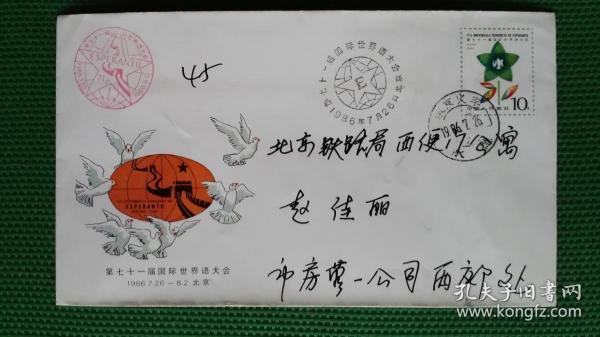 ESPERANTO
71a
45
第七十一届国际世界语大会
1986年7月26日
71a UNIVERSALA KONGRESO DE ESPERANTO
第七十一届国际世界语大会
10分
1986.7.26
北京铁路局西便门公寓
赵佳丽
市房管一公司西郊外
71a UNIVERSALA KONGRESO DE
ESPERANTO
第七十一届国际世界语大会
1986.7.26-8.2 北京
孔夫子旧书网
www.kongfz.com